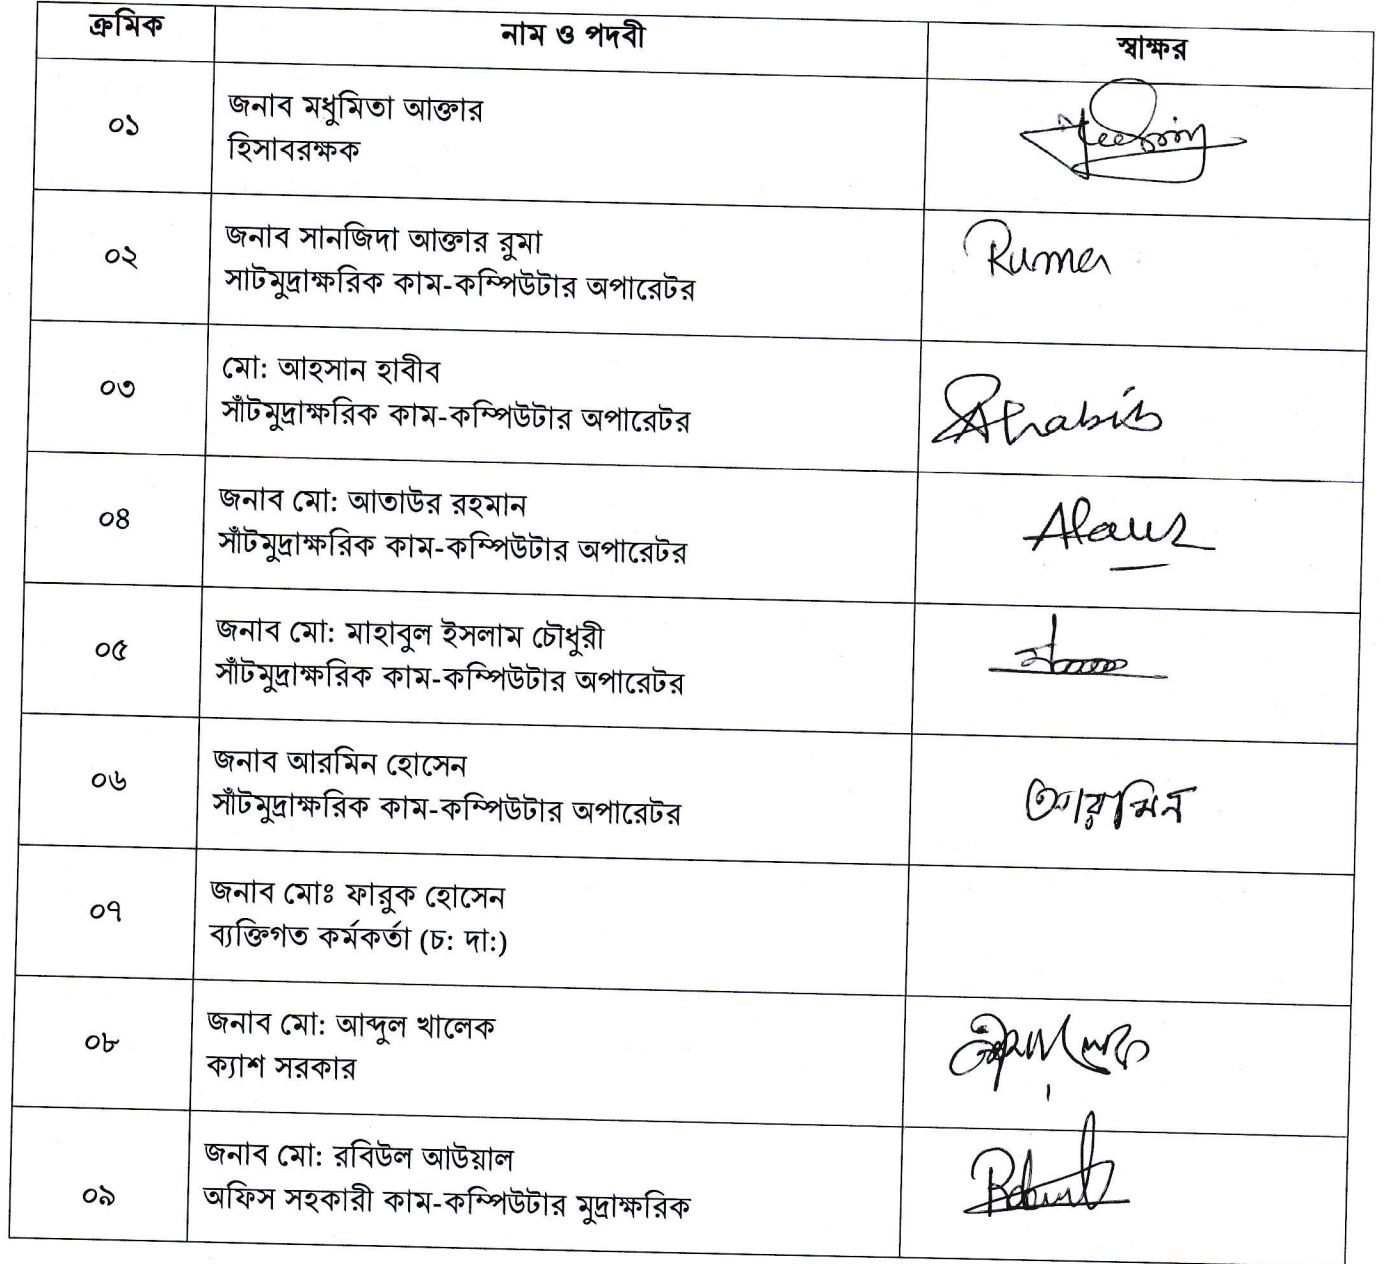 ক্রমিক নাম ও পদবী স্বাক্ষর
০১ জনাব মধুমিতা আক্তার
হিসাবরক্ষক
০২ জনাব সানজিদা আক্তার রুমা Ruma
সাটমুদ্রাক্ষরিক কাম-কম্পিউটার অপারেটর
০৩ মো: আহসান হাবীব
সাঁটমুদ্রাক্ষরিক কাম-কম্পিউটার অপারেটর
০৪ জনাব মো: আতাউর রহমান
সাঁটমুদ্রাক্ষরিক কাম-কম্পিউটার অপারেটর
০৫ জনাব মো: মাহাবুল ইসলাম চৌধুরী
সাঁটমুদ্রাক্ষরিক কাম-কম্পিউটার অপারেটর
০৬ জনাব আরমিন হোসেন আরমিন
সাঁটমুদ্রাক্ষরিক কাম-কম্পিউটার অপারেটর
০৭ জনাব মোঃ ফারুক হোসেন
ব্যক্তিগত কর্মকর্তা (চ: দা:)
০৮ জনাব মো: আব্দুল খালেক
ক্যাশ সরকার
০৯ জনাব মো: রবিউল আউয়াল
অফিস সহকারী কাম-কম্পিউটার মুদ্রাক্ষরিক